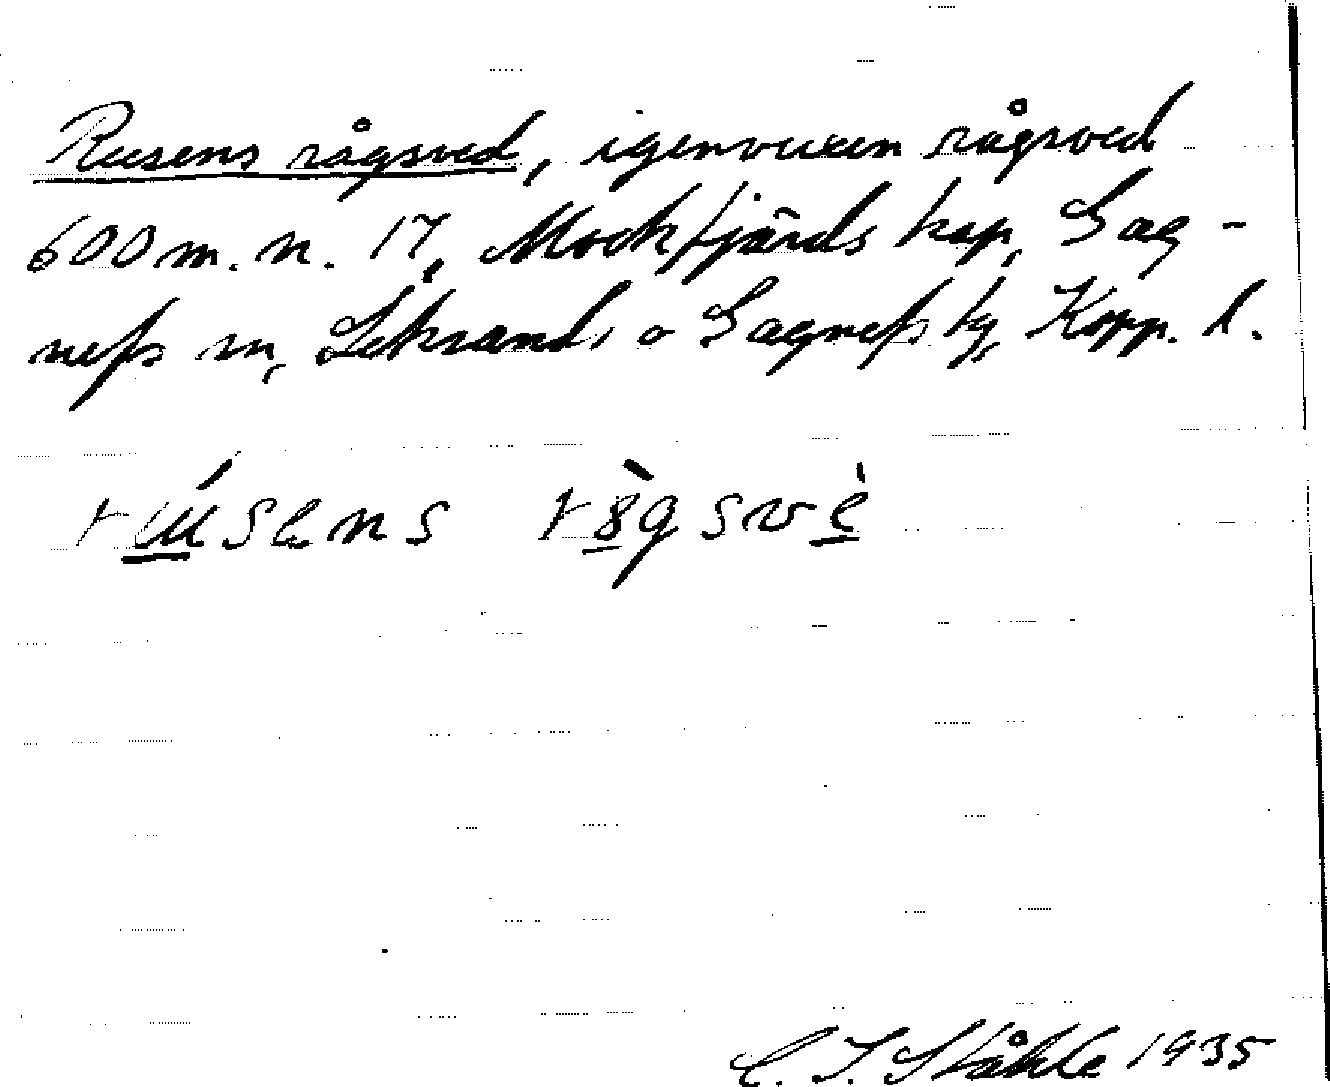 Rusens rågsved, igenvuxen rågsved
600 m. n. 17, Mockfjärds kap, Gag-
nefs sn, Leksands o Gagnefs tg, Kopp. l.
rúsens rògsvè
C. I. Ståhle 1935